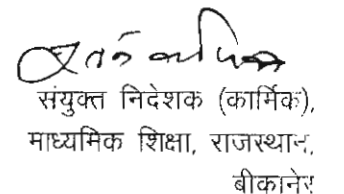 संयुक्त निदेशक (कार्मिक),
माध्यमिक शिक्षा, राजस्थान,
बीकानेर